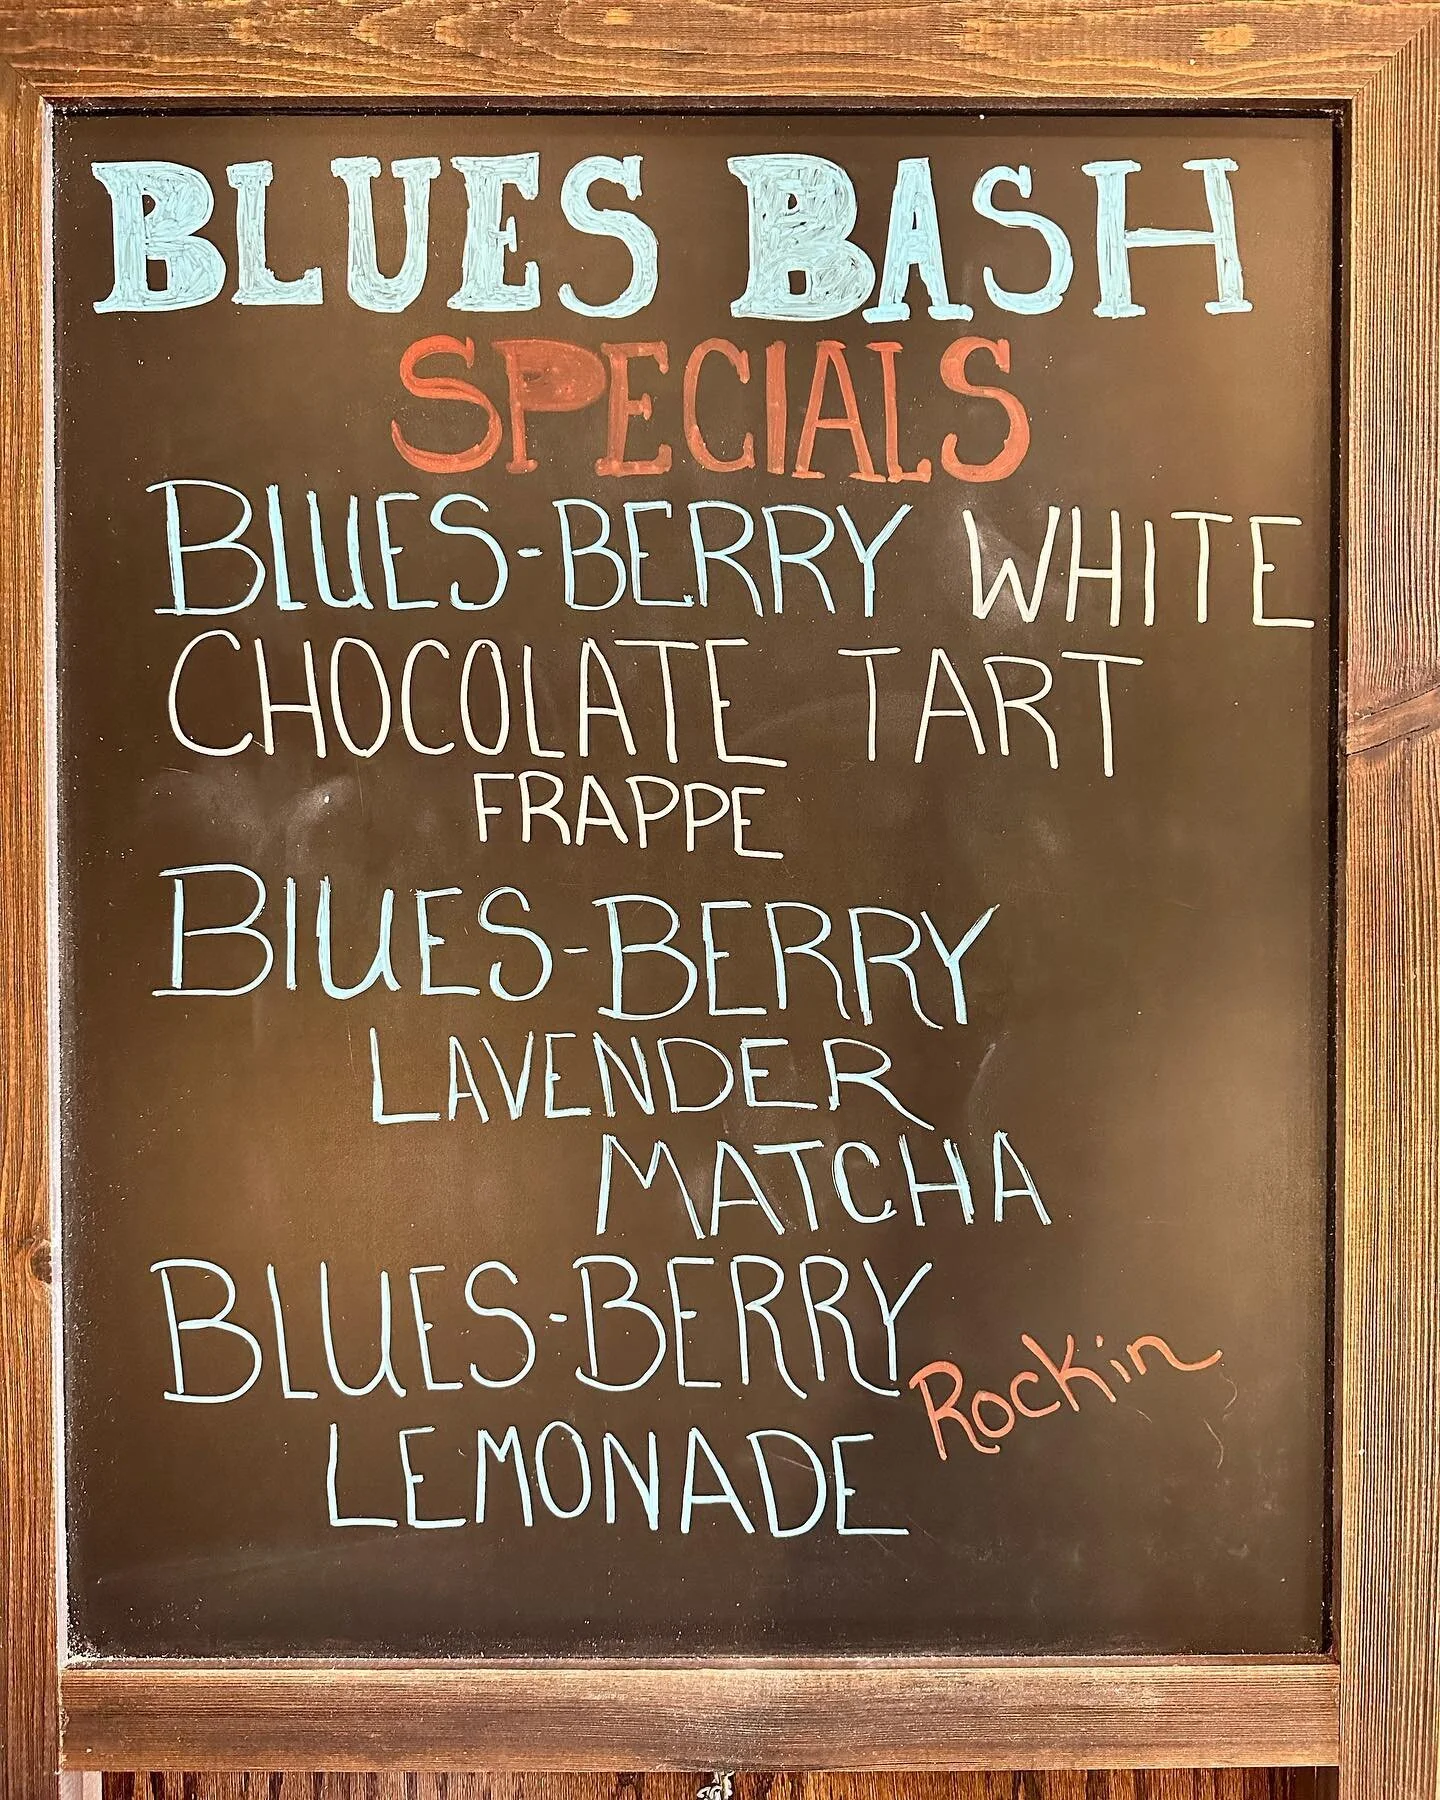 BLUES BASH
SPECIALS
BLUES-BERRY WHITE
CHOCOLATE TART
FRAPPE
BLUES-BERRY
LAVENDER
MATCHA
BLUES-BERRY
Rockin
LEMONADE